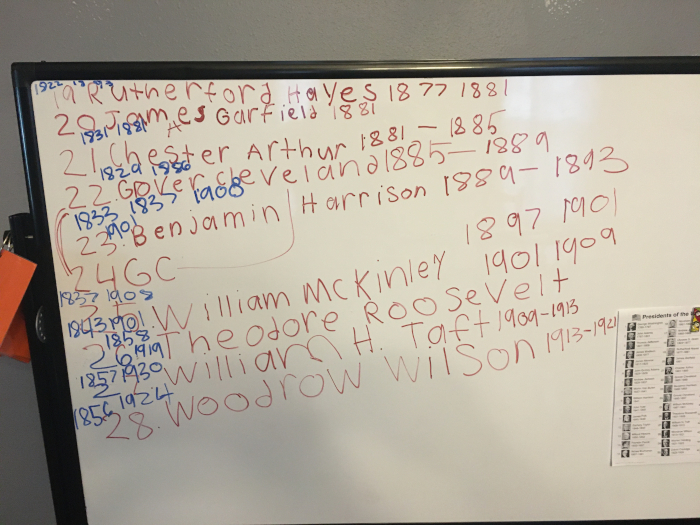 1822 1893
19 Rutherford Hayes 1877 1881
20 James A Garfield 1881
1831 1881
21. Chester Arthur 1881 - 1885
1829 1886
22. Grover Cleveland 1885 - 1889
1837 1908
23. Benjamin Harrison 1889 - 1893
1833 1901
24 GC
1837 1908
25. William McKinley 1897 1901
1843 1901
26 Theodore Roosevelt 1901 1909
1858 1919
William H. Taft 1909-1913
1857 1930
28. Woodrow Wilson 1913-1921
1856 1924
Presidents of the